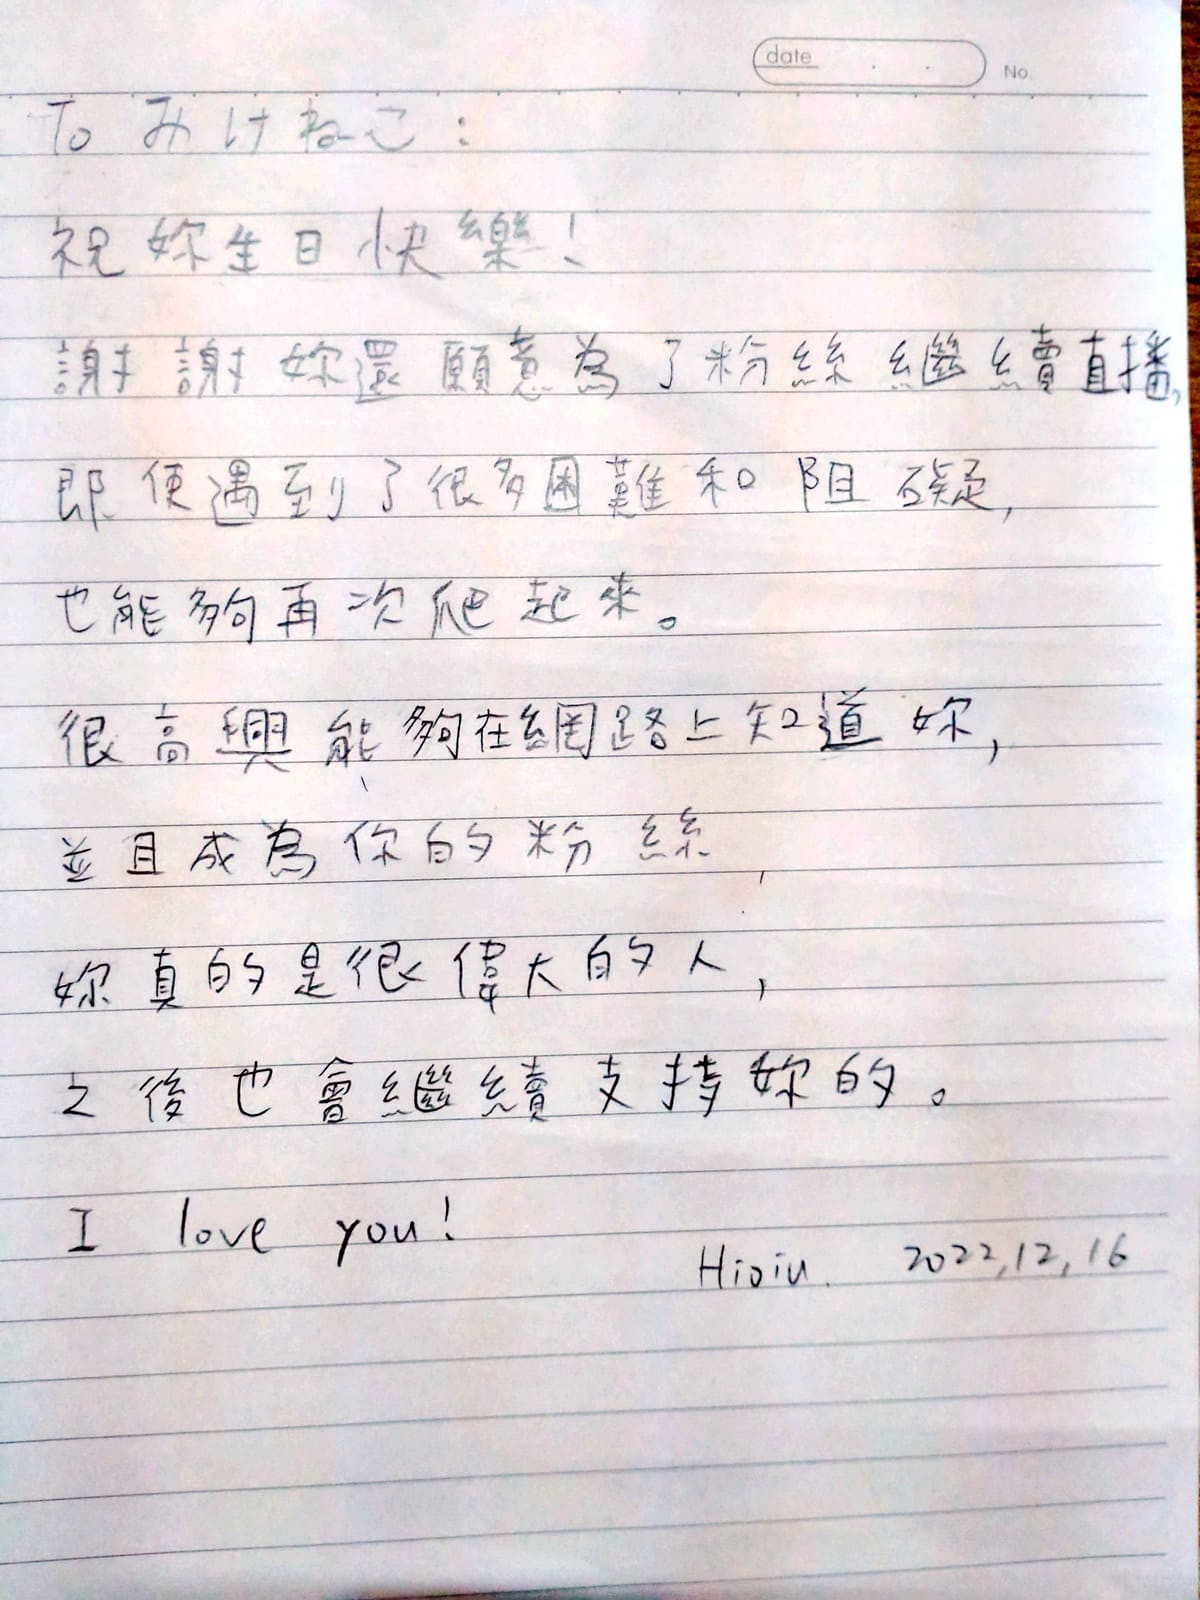 date . .
No.
To みけねこ：
祝妳生日快樂！
謝謝妳還願意為了粉絲繼續直播，
即使遇到了很多困難和阻礙，
也能夠再次爬起來。
很高興能夠在網路上知道妳，
並且成為你的粉絲，
妳真的是很偉大的人，
之後也會繼續支持妳的。
I love you!
Hioiu. 2022,12,16